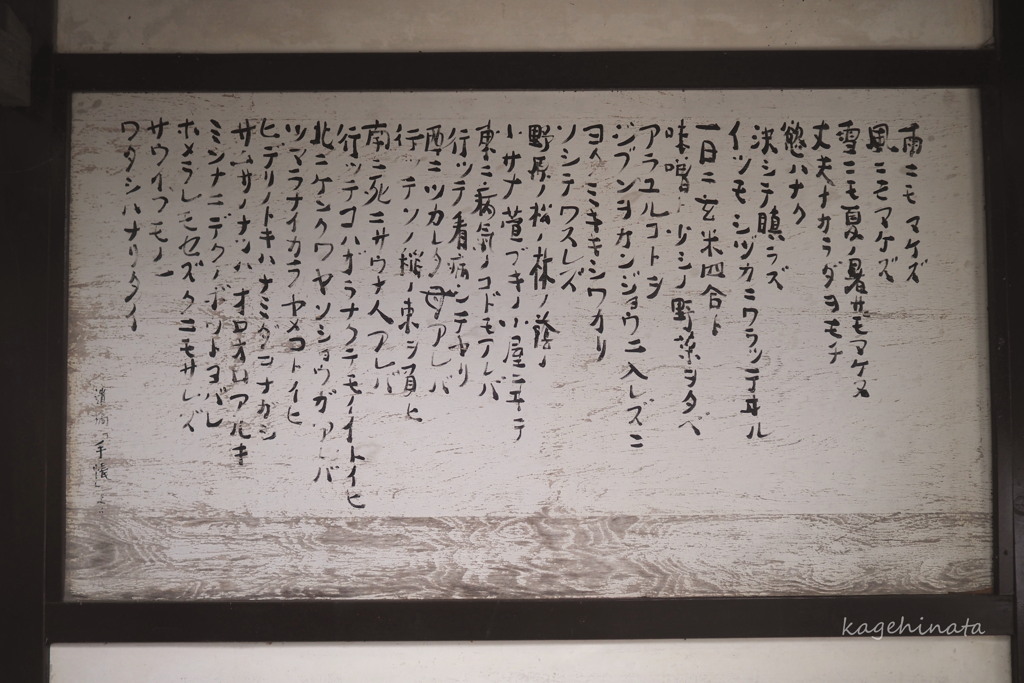 雨ニモマケズ
風ニモマケズ
雪ニモ夏ノ暑サニモマケヌ
丈夫ナカラダヲモチ
慾ハナク
決シテ瞋ラズ
イツモシヅカニワラッテヰル
一日ニ玄米四合ト
味噌ト少シノ野菜ヲタベ
アラユルコトヲ
ジブンヲカンジョウニ入レズニ
ヨクミキキシワカリ
ソシテワスレズ
野原ノ松ノ林ノ蔭ノ
小サナ萱ブキノ小屋ニヰテ
東ニ病気ノコドモアレバ
行ッテ看病シテヤリ
西ニツカレタ母アレバ
行ッテソノ稲ノ束ヲ負ヒ
南ニ死ニサウナ人アレバ
行ッテコハガラナクテモイイトイヒ
北ニケンクワヤソショウガアレバ
ツマラナイカラヤメロトイヒ
ヒデリノトキハナミダヲナガシ
サムサノナツハオロオロアルキ
ミンナニデクノボウトヨバレ
ホメラレモセズクニモサレズ
サウイフモノニ
ワタシハナリタイ
「手帳」より
kagehinata